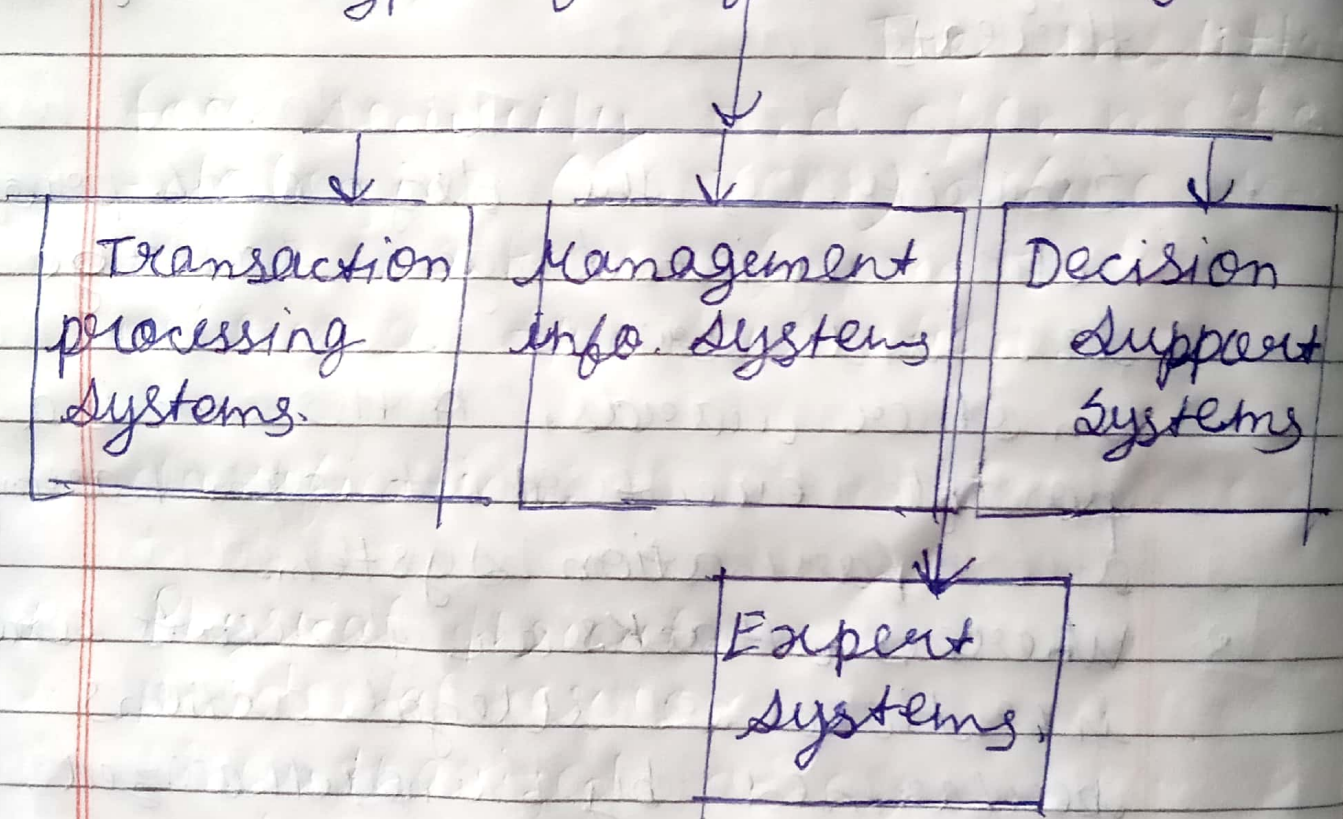 Transaction
processing
Systems.
Management
info. Systems
Decision
Support
Systems
Expert
Systems.